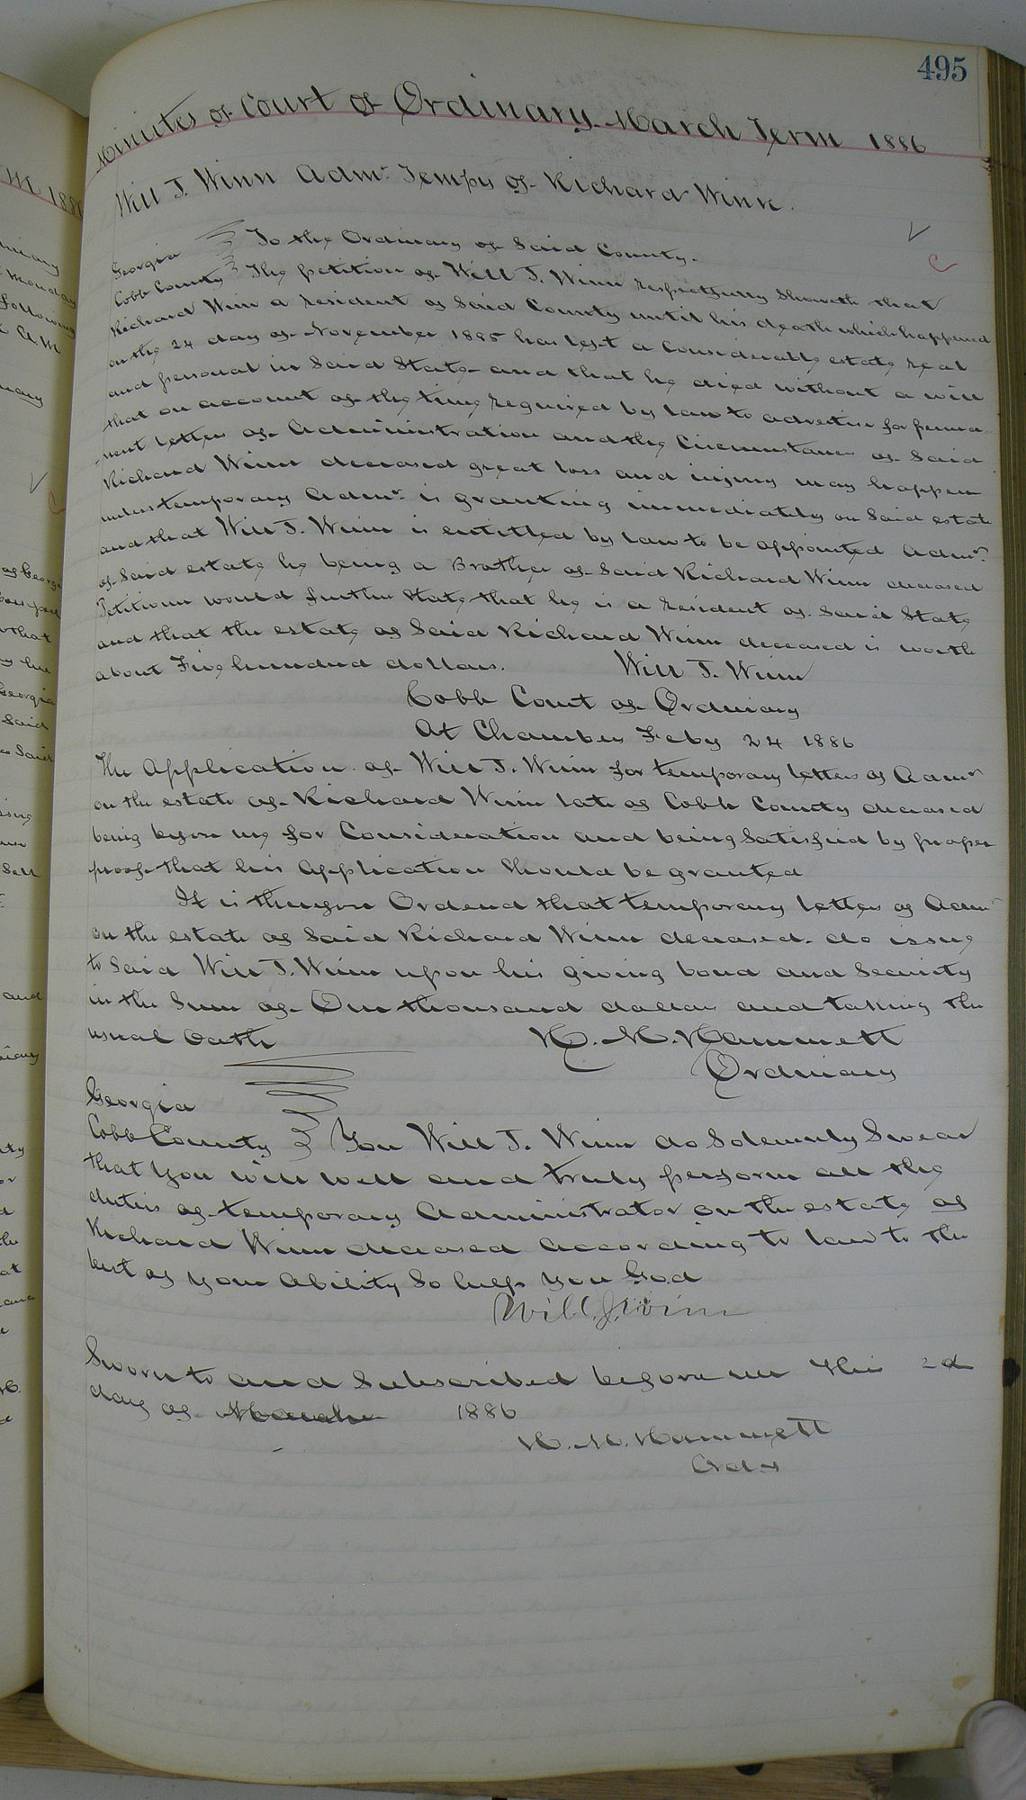 495
Minutes of Court of Ordinary March Term 1886
Will J. Winn Admr. Tempy of Richard Winn.
Georgia To the Ordinary of Said County.
Cobb County The petition of Will J. Winn respectfully Sheweth that
Richard Winn a resident of Said County until his death which happened
on the 24 day of November 1885 has left a Considerable estate real
and personal in Said State and that he died without a will
that on account of the time required by law to advertise for perma
nent letters of Administration and the Circumstances of Said
Richard Winn deceased great loss and injury may happen
unless temporary Admr. is granting immediately on Said estate
and that Will J. Winn is entitled by law to be appointed Admr
of Said estate he being a Brother of Said Richard Winn deceased
Petitioner would further State that he is a resident of Said State
and that the estate of Said Richard Winn deceased is worth
about Five hundred dollars. Will J. Winn
Cobb Court of Ordinary
At Chambers Feby 24 1886
The Application of Will J. Winn for temporary letters of Admr
on the estate of Richard Winn late of Cobb County deceased
being before me for Consideration and being Satisfied by proper
proof that his Application Should be granted
It is therefore Ordered that temporary letters of Adm
on the estate of Said Richard Winn deceased do issue
to Said Will J. Winn upon his giving bond and Security
in the Sum of One thousand dollars and taking the
usual Oath H. M. Hammett
Ordinary
Georgia
Cobb County You Will J. Winn do Solemnly Swear
that you will well and truly perform all the
duties of temporary Administrator on the estate of
Richard Winn deceased according to law to the
best of your Ability So help you God
Will. J. Winn
Sworn to and Subscribed before me this 2d
day of March 1886
H. M. Hammett
Ord.y